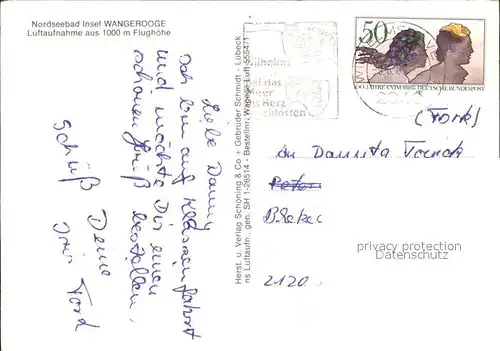 Nordseebad Insel WANGEROOGE
Luftaufnahme aus 1000 m Flughöhe
Liebe Danny
Ich bin auf Klassenfahrt
und möchte Dir einen
schönen Gruß bestellen.
Schüß Deine
Iris Ford
Herst. u. Verlag Schöning & Co + Gebrüder Schmidt - Lübeck
ns Luftaufn., gen. SH 1-26514 - Bestellnr. Wagege Luft 555471
Wilhelms
hat das
Meer
ins Herz
schlossen
50
100 JAHRE CVJM DEUTSCHE BUNDESPOST
(Fork)
an
Peter
2120
privacy protection
Datenschutz